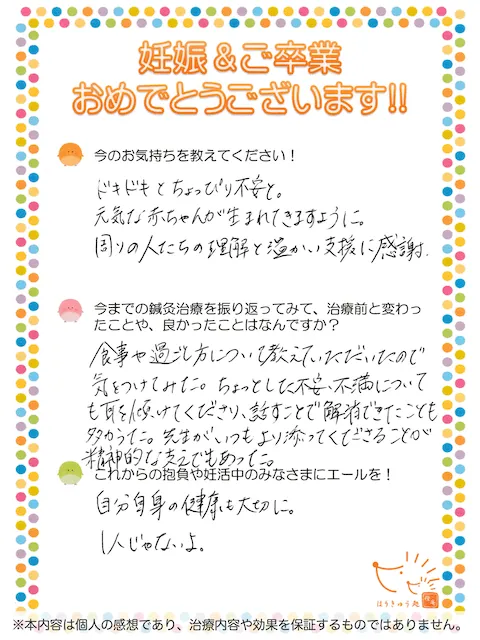 妊娠&ご卒業
おめでとうございます!!
今のお気持ちを教えてください！
ドキドキとちょっぴり不安と。
元気な赤ちゃんが生まれてきますように。
周りの人たちの理解と温かい支援に感謝.
今までの鍼灸治療を振り返ってみて、治療前と変わっ
たことや、良かったことはなんですか？
食事や過ごし方について教えていただいたので
気をつけてみた。ちょっとした不安、不満について
も耳を傾けてくださり、話すことで解消できたことも
多かった。先生がいつもより添ってくださることが
精神的な支えでもあった。
これからの抱負や妊活中のみなさまにエールを！
自分自身の健康も大切に。
1人じゃないよ。
はりきゅう処
※本内容は個人の感想であり、治療内容や効果を保証するものではありません。